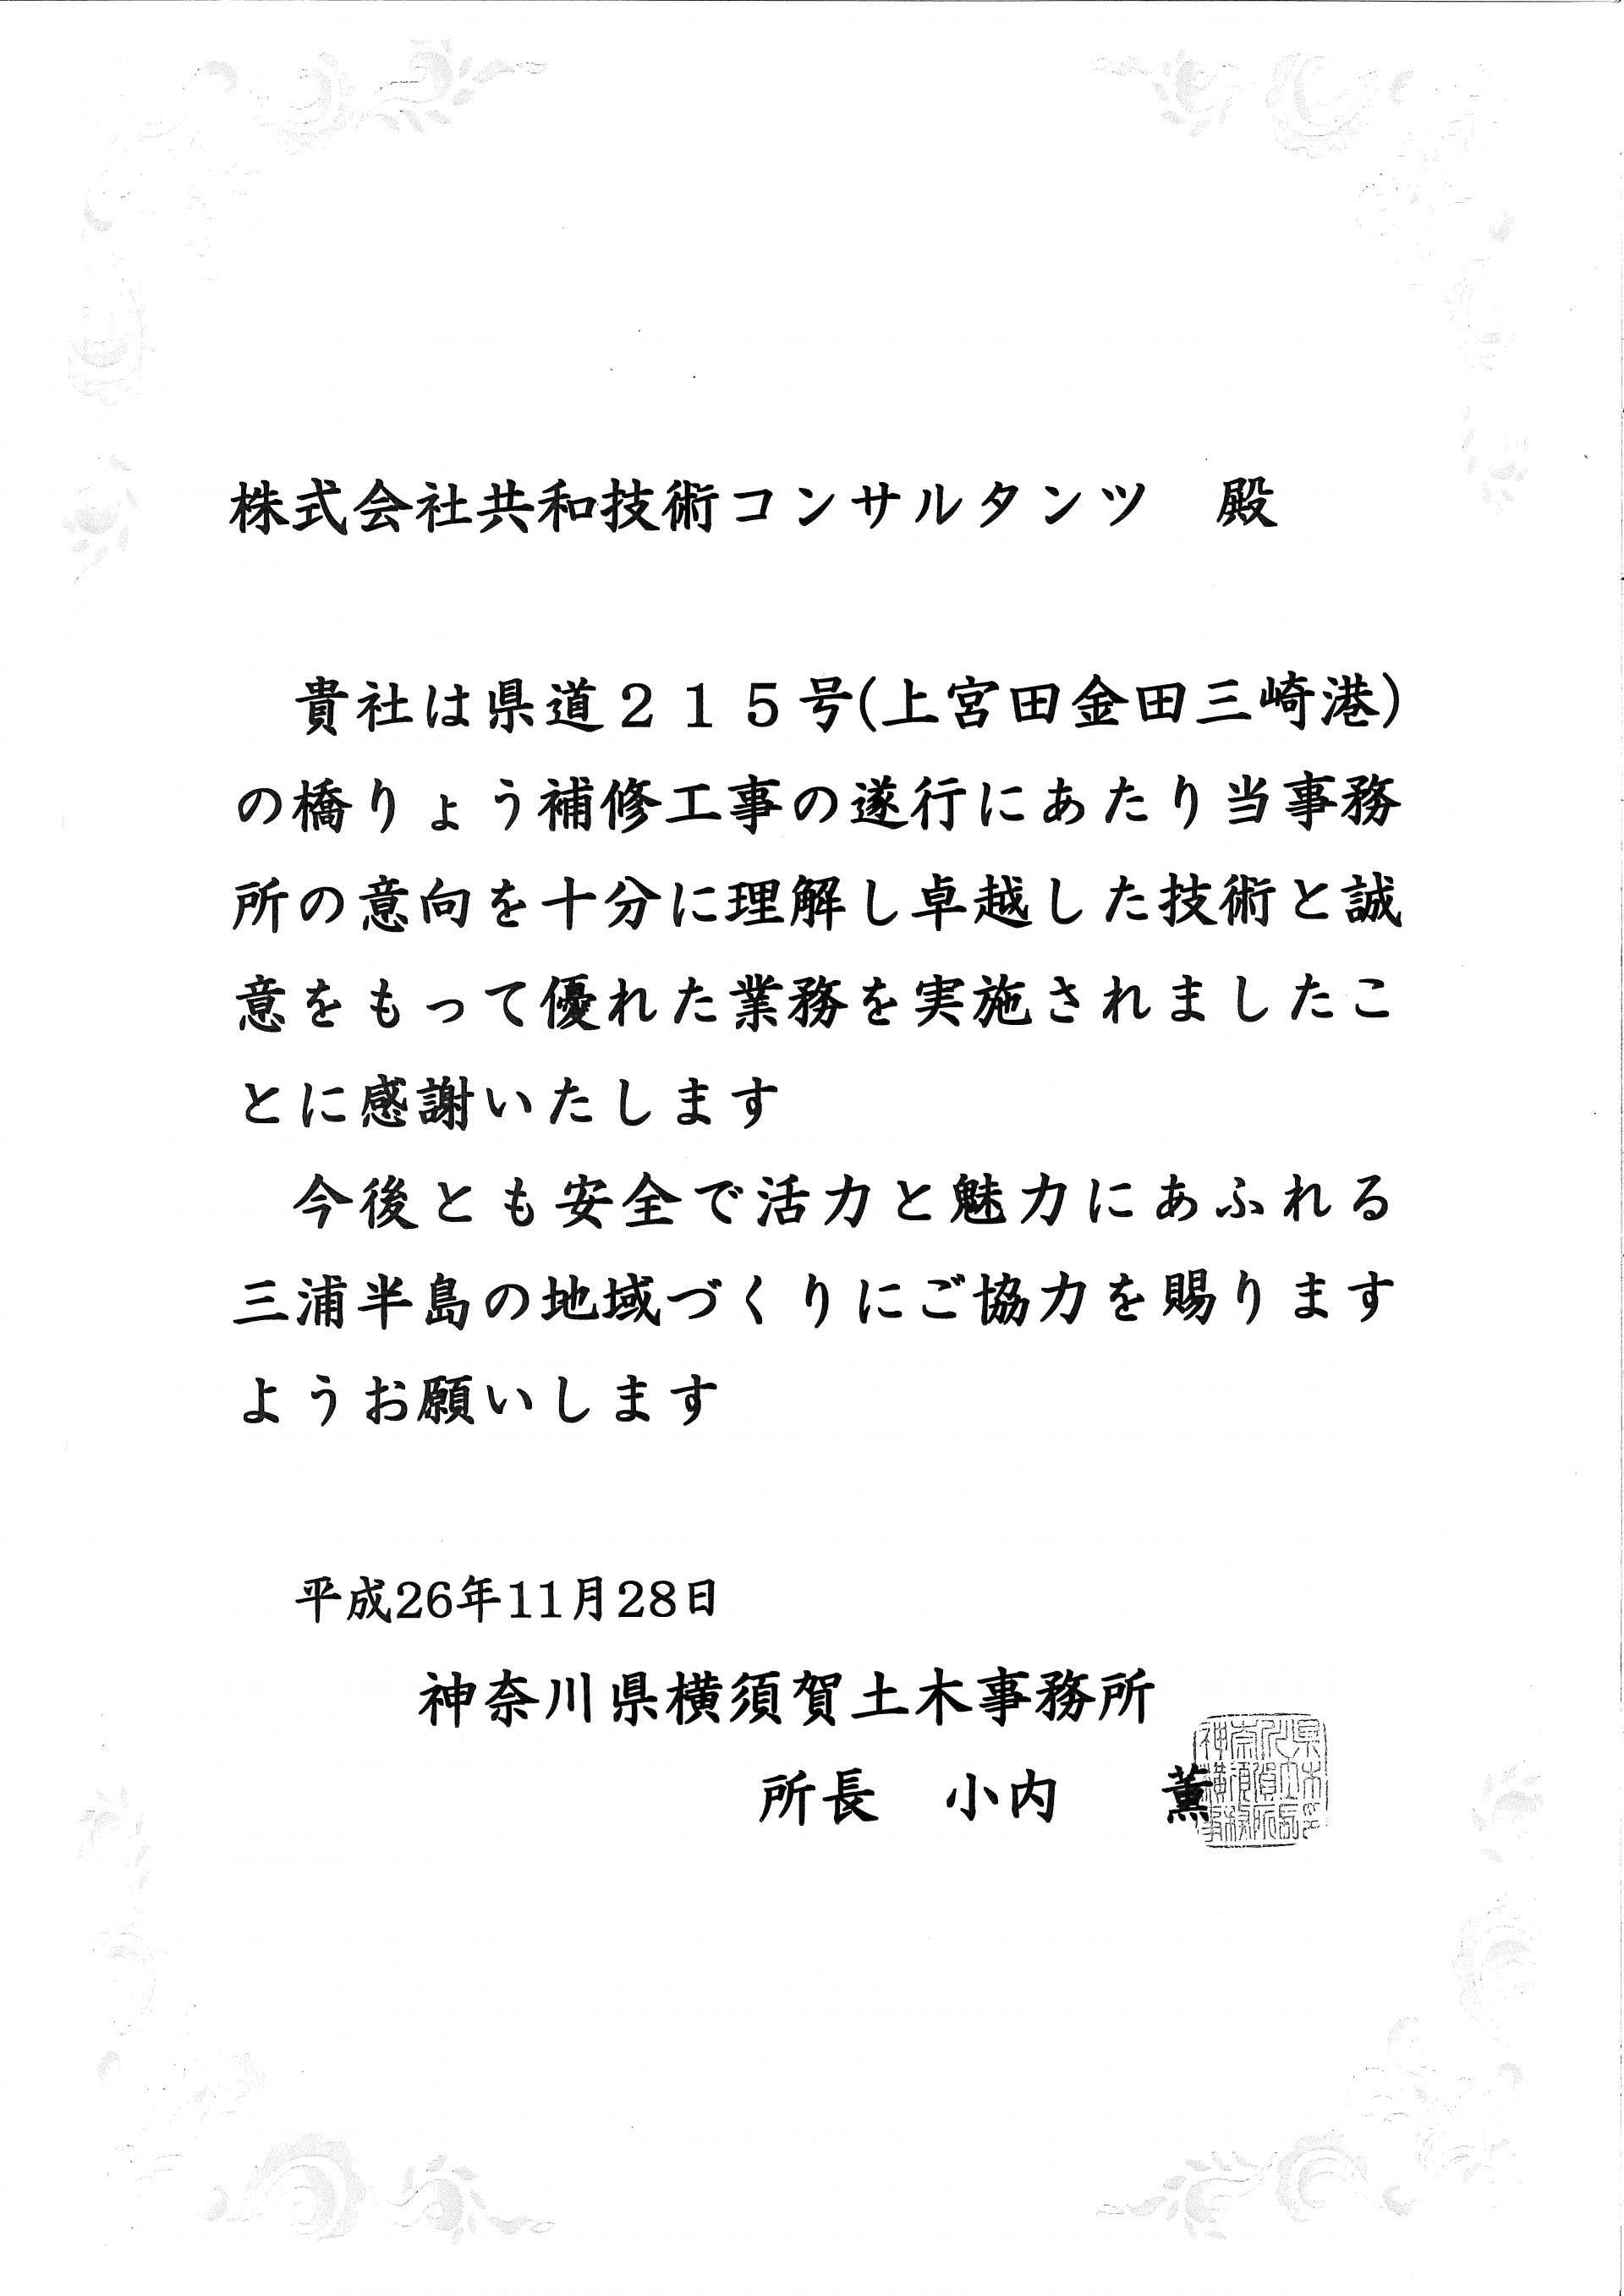 株式会社共和技術コンサルタンツ　殿
貴社は県道２１５号(上宮田金田三崎港)
の橋りょう補修工事の遂行にあたり当事務
所の意向を十分に理解し卓越した技術と誠
意をもって優れた業務を実施されましたこ
とに感謝いたします
今後とも安全で活力と魅力にあふれる
三浦半島の地域づくりにご協力を賜ります
ようお願いします
平成26年11月28日
神奈川県横須賀土木事務所
所長　小内　薫